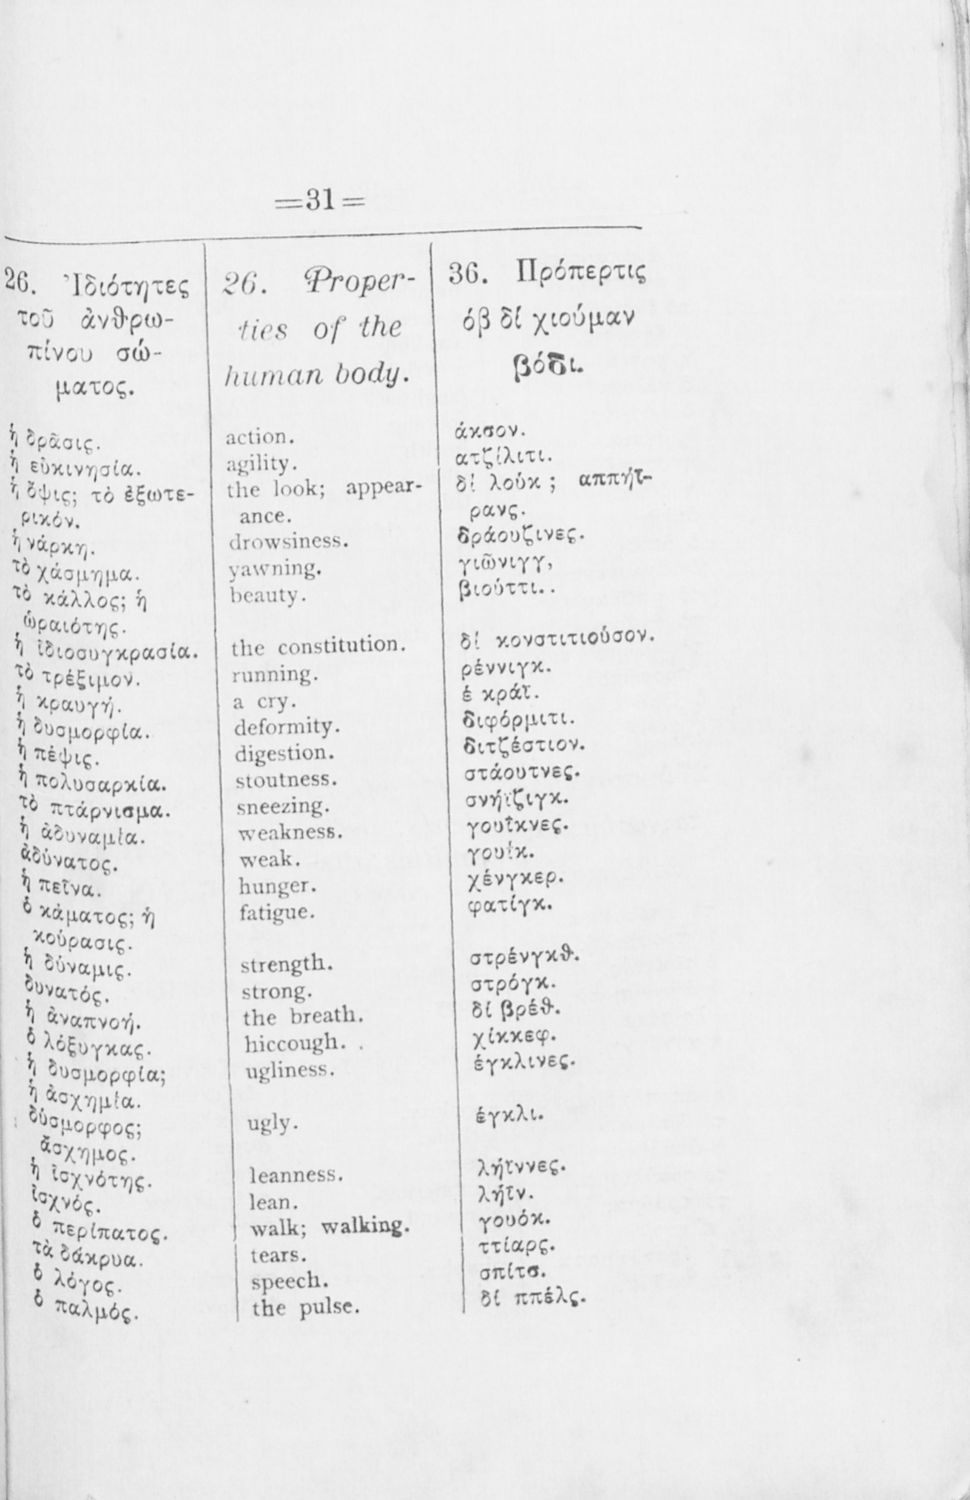 =31=
26. Ἰδιότητες
τοῦ ἀνθρω-
πίνου σώ-
ματος.
ἡ δρᾶσις.
ἡ εὐκινησία.
ἡ ὄψις; τὸ ἐξωτε-
ρικόν.
ἡ νάρκη.
τὸ χάσμημα.
τὸ κάλλος; ἡ
ὡραιότης.
ἡ ἰδιοσυγκρασία.
τὸ τρέξιμον.
ἡ κραυγή.
ἡ δυσμορφία.
ἡ πέψις.
ἡ πολυσαρκία.
τὸ πτάρνισμα.
ἡ ἀδυναμία.
ἀδύνατος.
ἡ πεῖνα.
ὁ κάματος; ἡ
κούρασις.
ἡ δύναμις.
δυνατός.
ἡ ἀναπνοή.
ὁ λόξυγκας.
ἡ δυσμορφία;
ἡ ἀσχημία.
δύσμορφος;
ἄσχημος.
ἡ ἰσχνότης.
ἰσχνός.
ὁ περίπατος.
τὰ δάκρυα.
ὁ λόγος.
ὁ παλμός.
26. Proper-
ties of the
human body.
action.
agility.
the look; appear-
ance.
drowsiness.
yawning.
beauty.
the constitution.
running.
a cry.
deformity.
digestion.
stoutness.
sneezing.
weakness.
weak.
hunger.
fatigue.
strength.
strong.
the breath.
hiccough.
ugliness.
ugly.
leanness.
lean.
walk; walking.
tears.
speech.
the pulse.
36. Πρόπερτις
όβ δί χιούμαν
βόδι.
άκσον.
ατζίλιτι.
δί λούκ ; αππήϊ-
ρανς.
δράουζινες.
γιῶνιγγ,
βιούττι..
δί κονστιτιούσον.
ρέννιγκ.
έ κράϊ.
διφόρμιτι.
διτζέστιον.
στάουτνες.
σνήϊζιγκ.
γουΐκνες.
γουίκ.
χένγκερ.
φατίγκ.
στρένγκθ.
στρόγκ.
δί βρέθ.
χίκκεφ.
έγκλινες.
έγκλι.
λήϊννες.
λήϊν.
γουόκ.
ττίαρς.
σπίτσ.
δί ππέλς.